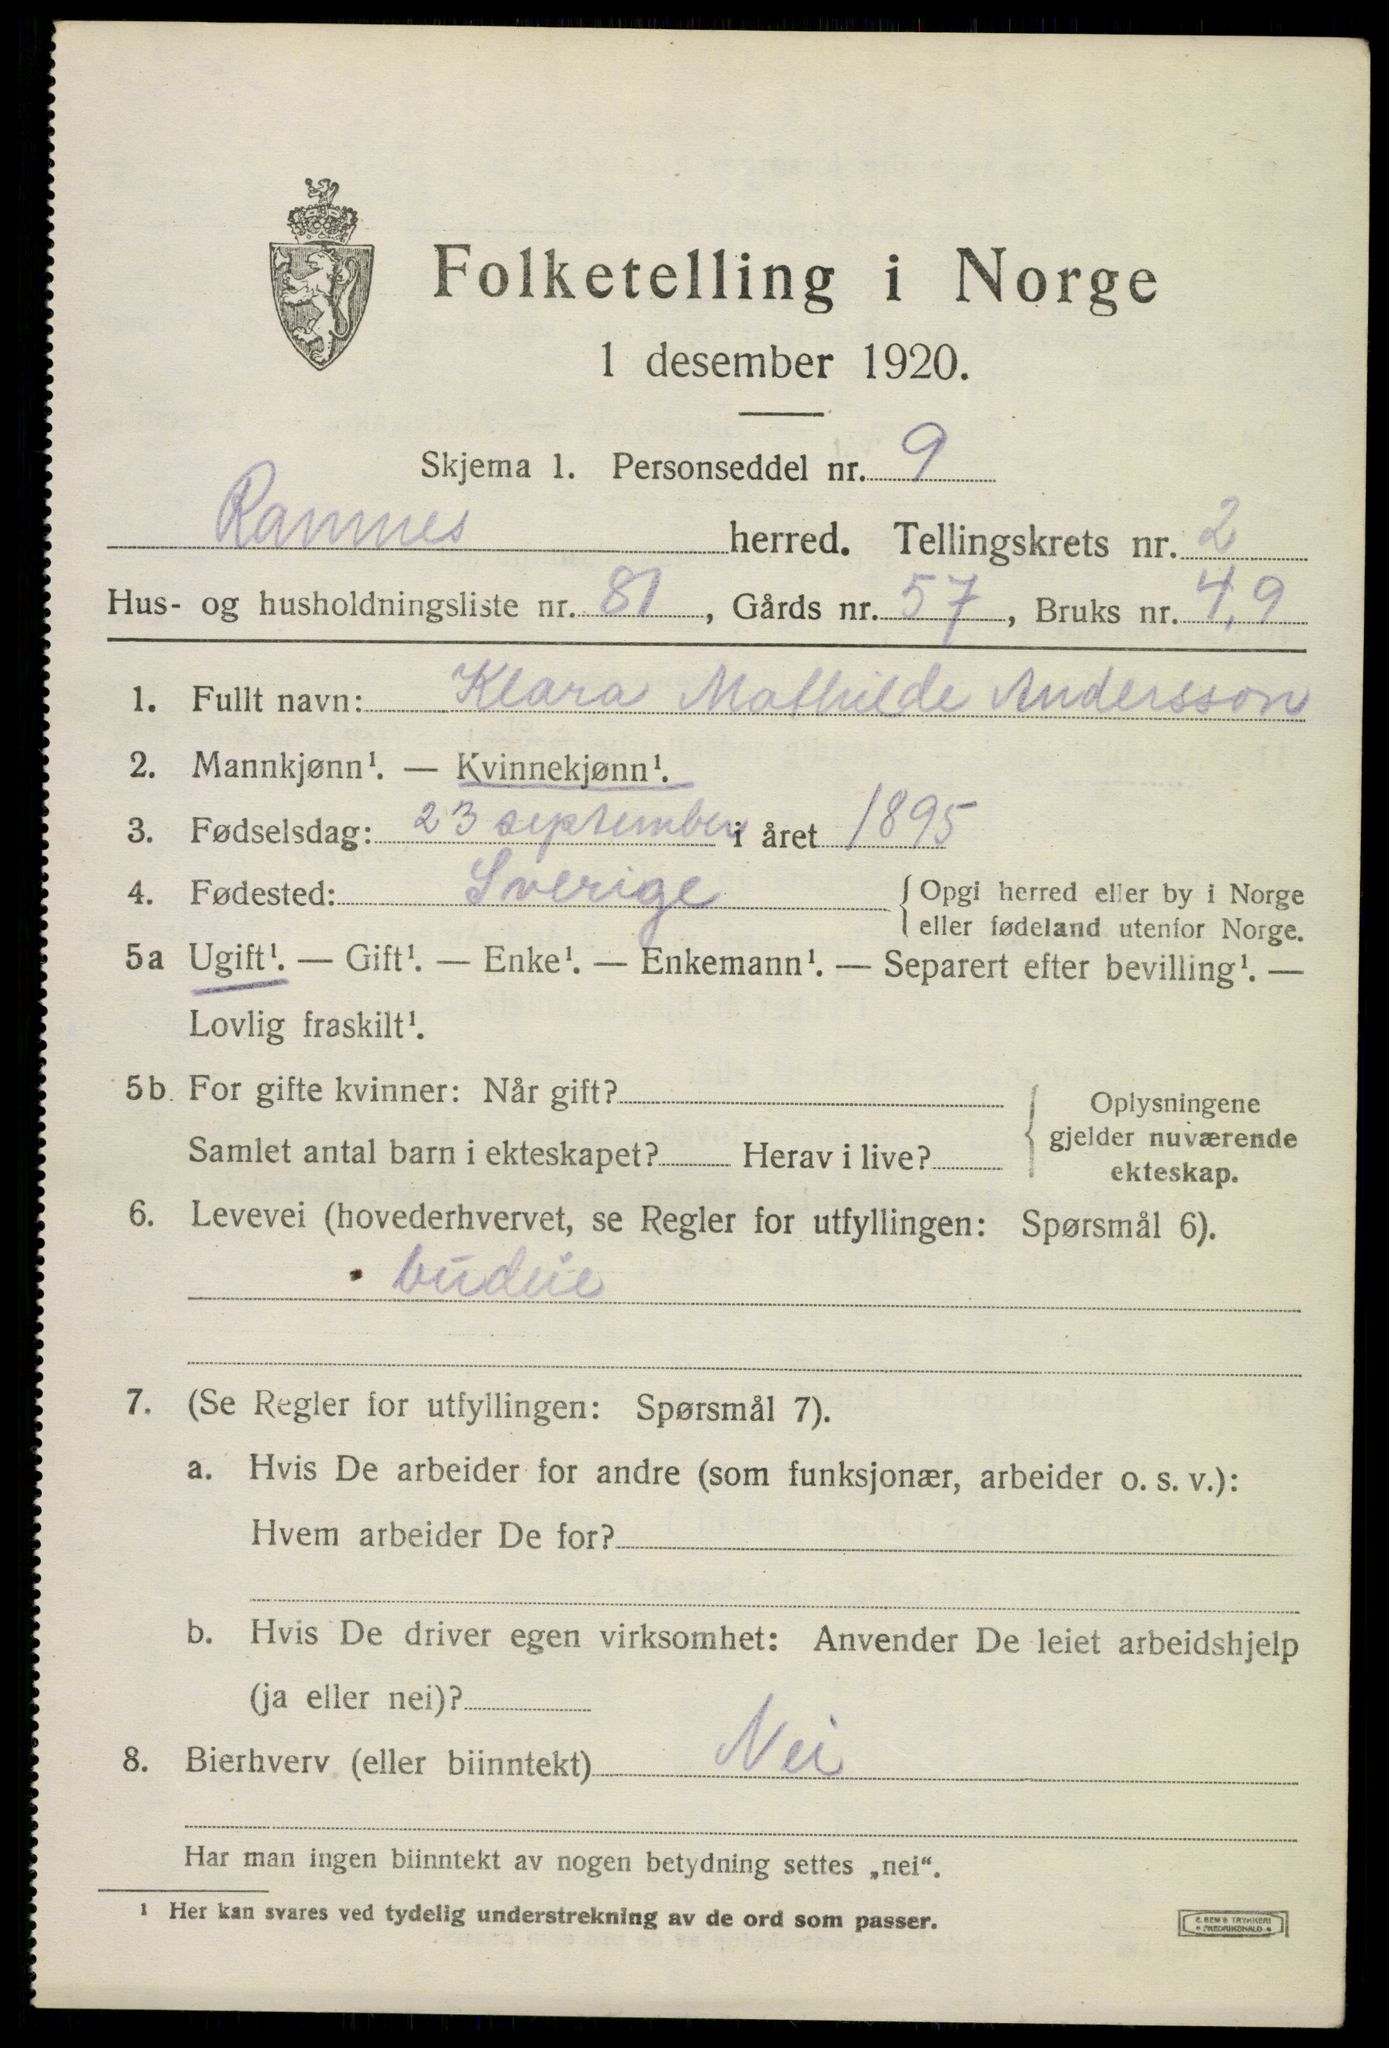 Folketelling i Norge
1 desember 1920.
Skjema 1. Personseddel nr. 9
Ramnes herred. Tellingskrets nr. 2
Hus- og husholdningsliste nr. 81, Gårds nr. 57, Bruks nr. 4,9
1. Fullt navn: Klara Mathilde Andersson
2. Mannkjønn¹. — Kvinnekjønn¹.
3. Fødselsdag: 23 september i året 1895
4. Fødested: Sverige { Opgi herred eller by i Norge
eller fødeland utenfor Norge.
5a Ugift¹. — Gift¹. — Enke¹. — Enkemann¹. — Separert efter bevilling¹. —
Lovlig fraskilt¹.
5b. For gifte kvinner: Når gift?
Samlet antal barn i ekteskapet? Herav i live?
{ Oplysningene
gjelder nuværende
ekteskap.
6. Levevei (hovederhvervet, se Regler for utfyllingen: Spørsmål 6).
budeie
7. (Se Regler for utfyllingen: Spørsmål 7).
a. Hvis De arbeider for andre (som funksjonær, arbeider o. s. v.):
Hvem arbeider De for?
b. Hvis De driver egen virksomhet: Anvender De leiet arbeidshjelp
(ja eller nei)?
8. Bierhverv (eller biinntekt) Nei
Har man ingen biinntekt av nogen betydning settes „nei“.
¹ Her kan svares ved tydelig understrekning av de ord som passer.